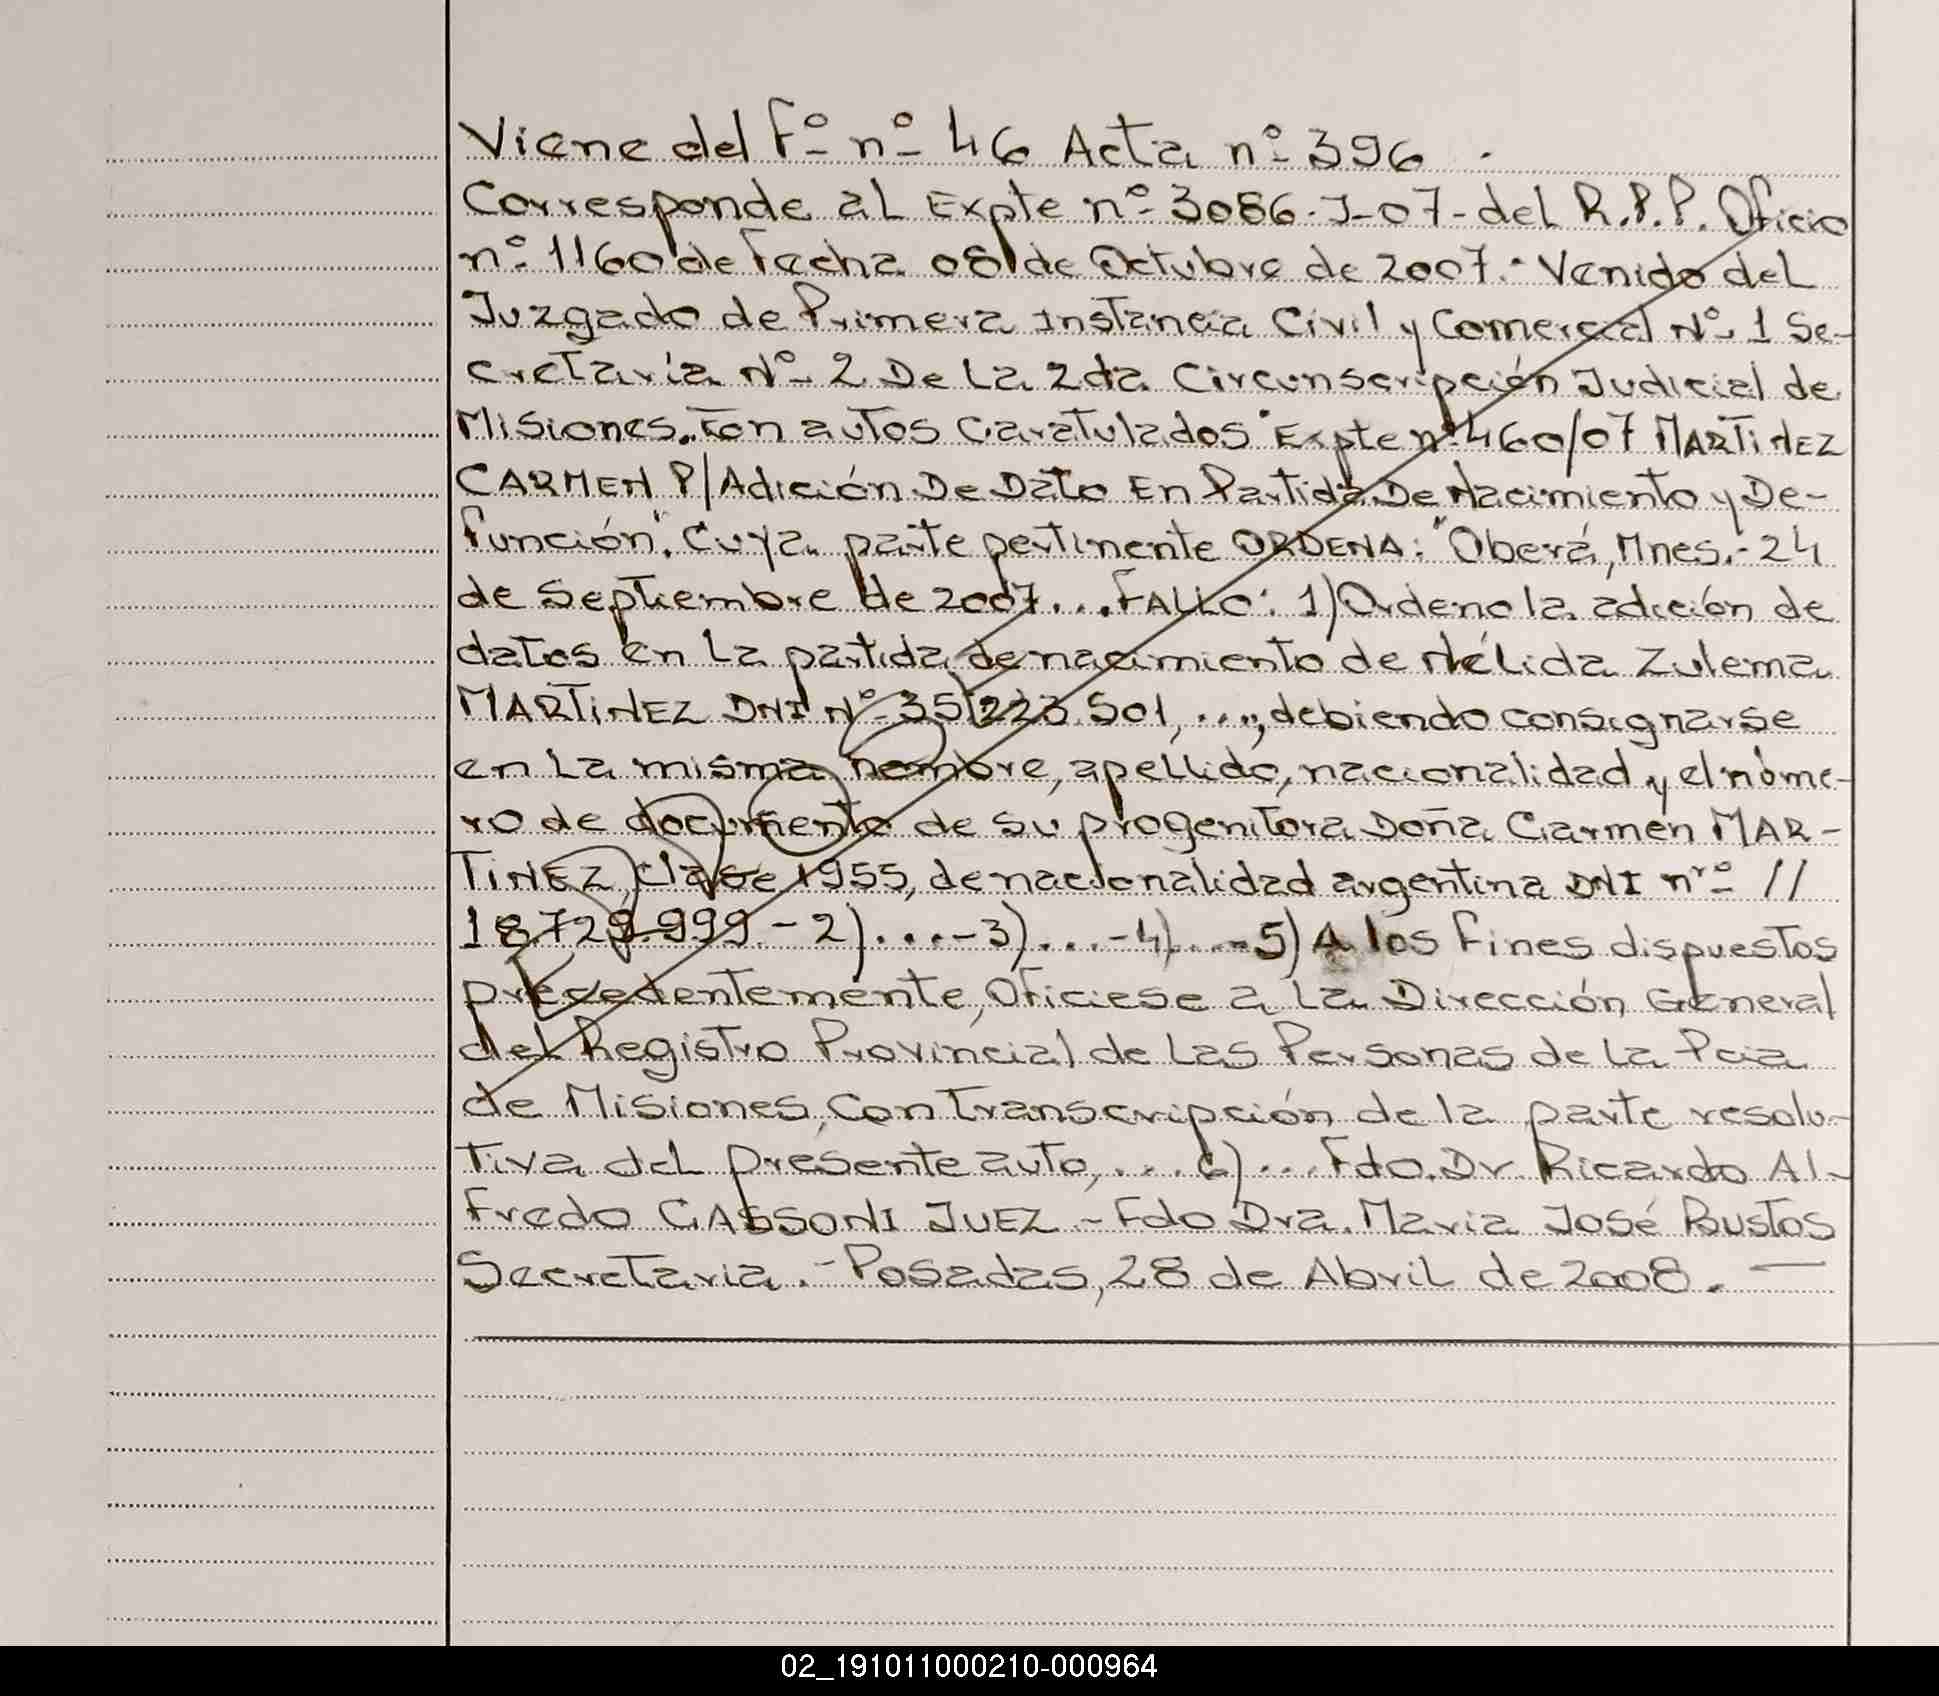 Viene del Fº nº 46 Acta nº 396.
Corresponde al Expte nº 3086-J-07-del R.P.P. Oficio
nº 1160 de Fecha 08 de Octubre de 2007.- Venido del
Juzgado de Primera Instancia Civil y Comercial Nº 1 Se-
cretaría Nº 2 De La 2da Circunscripción Judicial de
Misiones. En autos Caratulados "Expte nº 460/07 MARTiNEZ
CARMEN P/Adición De Dato En Partida De Nacimiento y De-
función". Cuya parte pertinente ORDENA: "Oberá, Mnes.- 24
de Septiembre de 2007... FALLO: 1) Ordeno la adición de
datos en La partida de nacimiento de Nélida Zulema
MARTiNEZ DNI Nº 35.223.501, ..., debiendo consignarse
en La misma nombre, apellido, nacionalidad y el núme-
ro de documento de su progenitora Doña Carmen MAR-
TiNEZ, Clase 1955, de nacionalidad argentina DNI nrº //
18.729.999.- 2)...-3)...-4)...-5) A los Fines dispuestos
precedentemente, Ofíciese a La Dirección General
del Registro Provincial de Las Personas de La Pcia
de Misiones, Con Transcripción de la parte resolu-
Tiva del presente auto,... 6)... Fdo. Dr. Ricardo Al-
fredo CASSONI JUEZ - Fdo Dra. Maria José Bustos
Secretaria.- Posadas, 28 de Abril de 2008.—
02_191011000210-000964